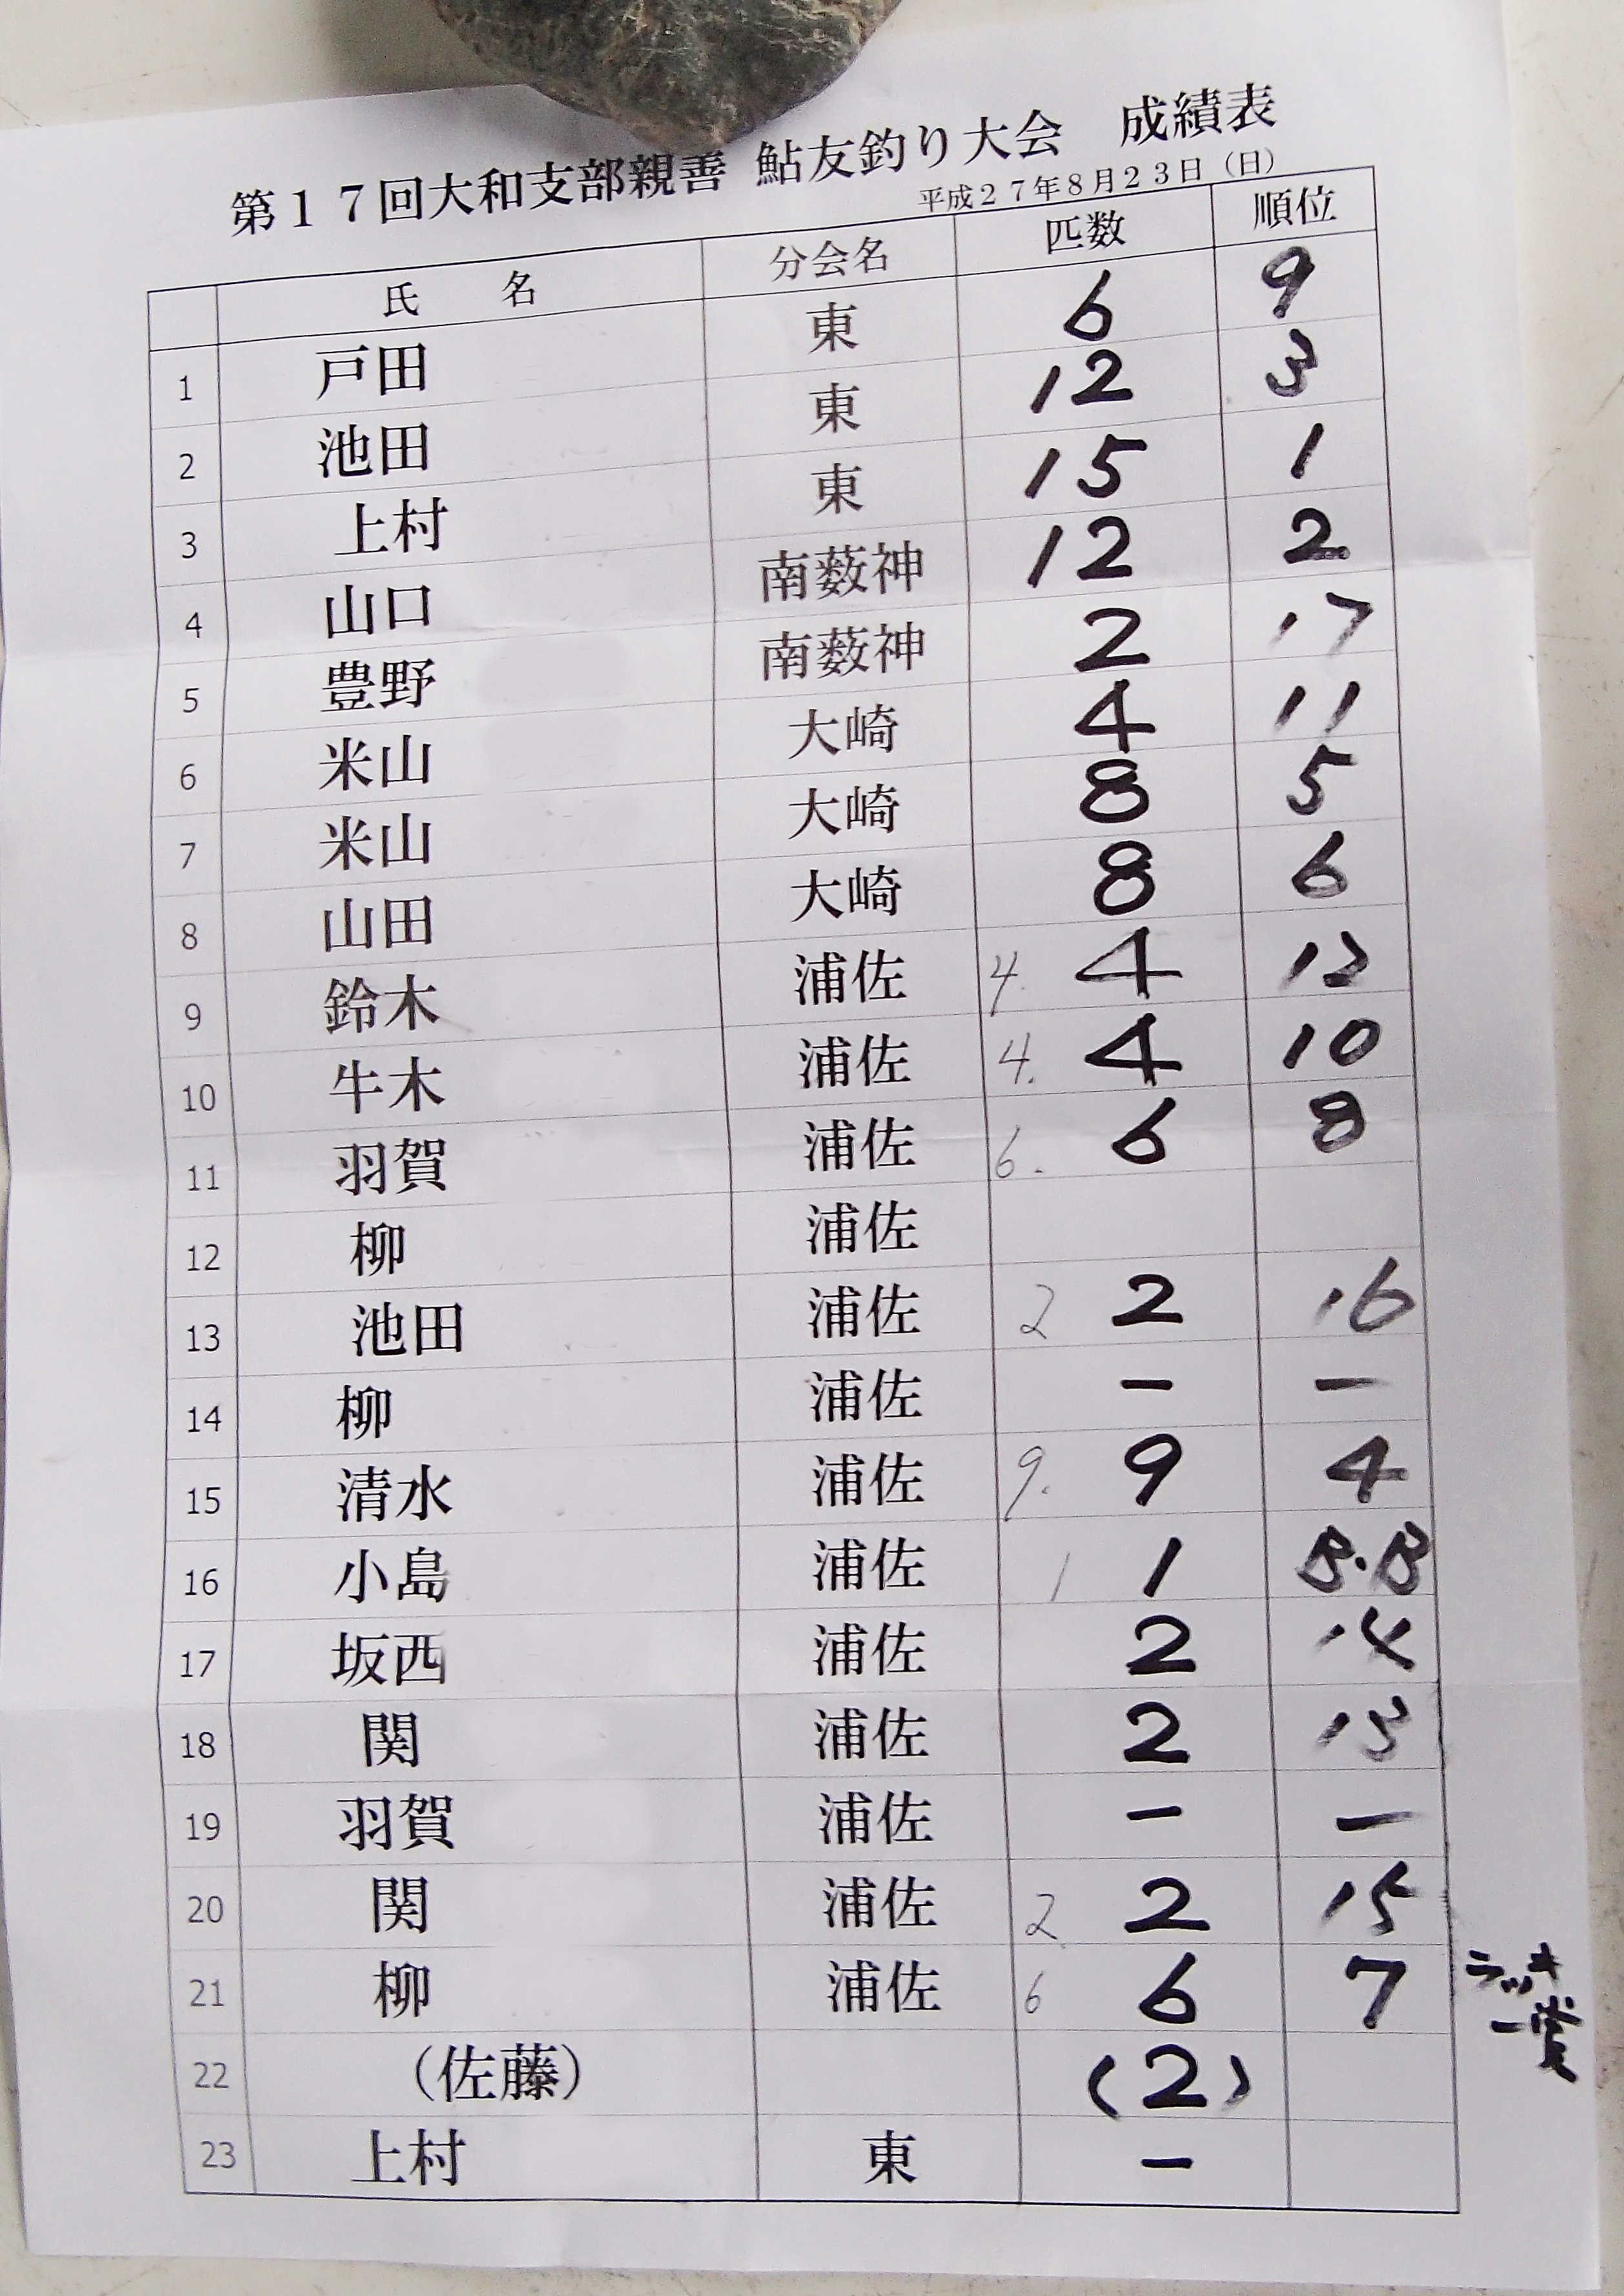 第１７回大和支部親善 鮎友釣り大会 成績表
平成２７年８月２３日（日）
氏 名 分会名 匹数 順位
1 戸田 東 6 9
2 池田 東 12 3
3 上村 東 15 1
4 山口 南薮神 12 2
5 豊野 南薮神 2 17
6 米山 大崎 4 11
7 米山 大崎 8 5
8 山田 大崎 8 6
9 鈴木 浦佐 4. 4 12
10 牛木 浦佐 4. 4 10
11 羽賀 浦佐 6. 6 8
12 柳 浦佐
13 池田 浦佐 2 2 16
14 柳 浦佐 － －
15 清水 浦佐 9. 9 4
16 小島 浦佐 1 1 B・B
17 坂西 浦佐 2 14
18 関 浦佐 2 13
19 羽賀 浦佐 － －
20 関 浦佐 2 2 15
21 柳 浦佐 6 6 7 ラッキー賞
22 （佐藤） (2)
23 上村 東 －